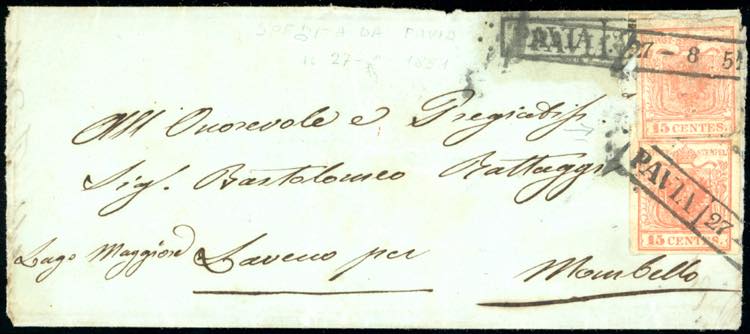 SPEDITA DA PAVIA
IL 27-8 1851
PAVIA 27-8 51
15 CENTES.
PAVIA 27
15 CENTES.
All' Onorevole e Pregiatiss
Sig. Bartolomeo Battaggi
Lago Maggiore Laveno per
Mombello